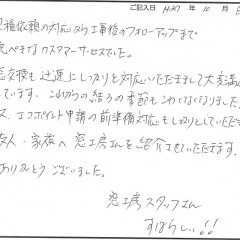 ご記入日 H27年10月
見積依頼の対応から工事後のフォローアップまで
素晴らしいカスタマーサービスでした。
窓交換も迅速にしっかりと対応いただきまして大変満足
しています。これからの結ろの季節もこわくなくなりました。
又、エコポイント申請の前準備対応もしっかりとしていただき
友人・家族へ窓工房さんを紹介させていただきます。
ありがとうございました。
窓工房スタッフさん
すばらしい!!